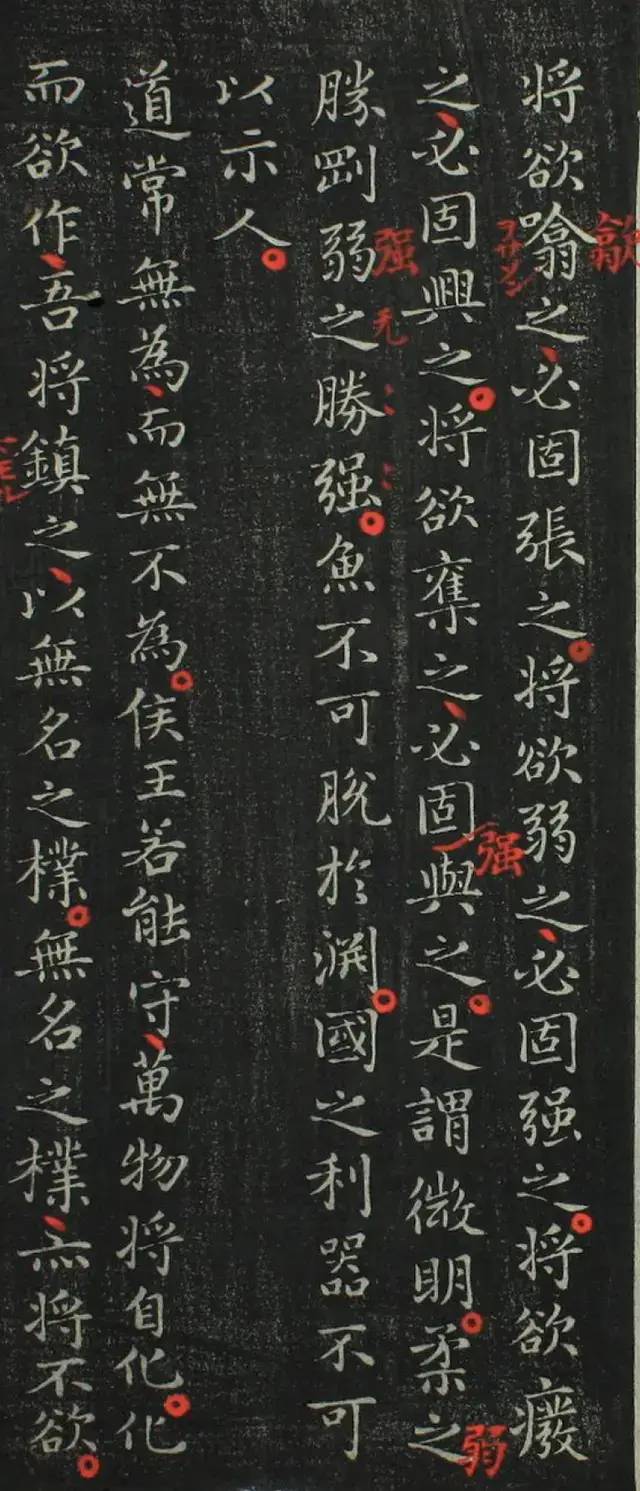 歙
将欲噏之必固張之将欲弱之必固强之将欲癈
强
弱
之必固興之将欲奪之必固與之是謂微明柔之
强
无
勝剛弱之勝强魚不可脫於渊國之利器不可
以示人
道常無為而無不為侯王若能守萬物将自化化
而欲作吾将鎮之以無名之樸無名之樸亦将不欲